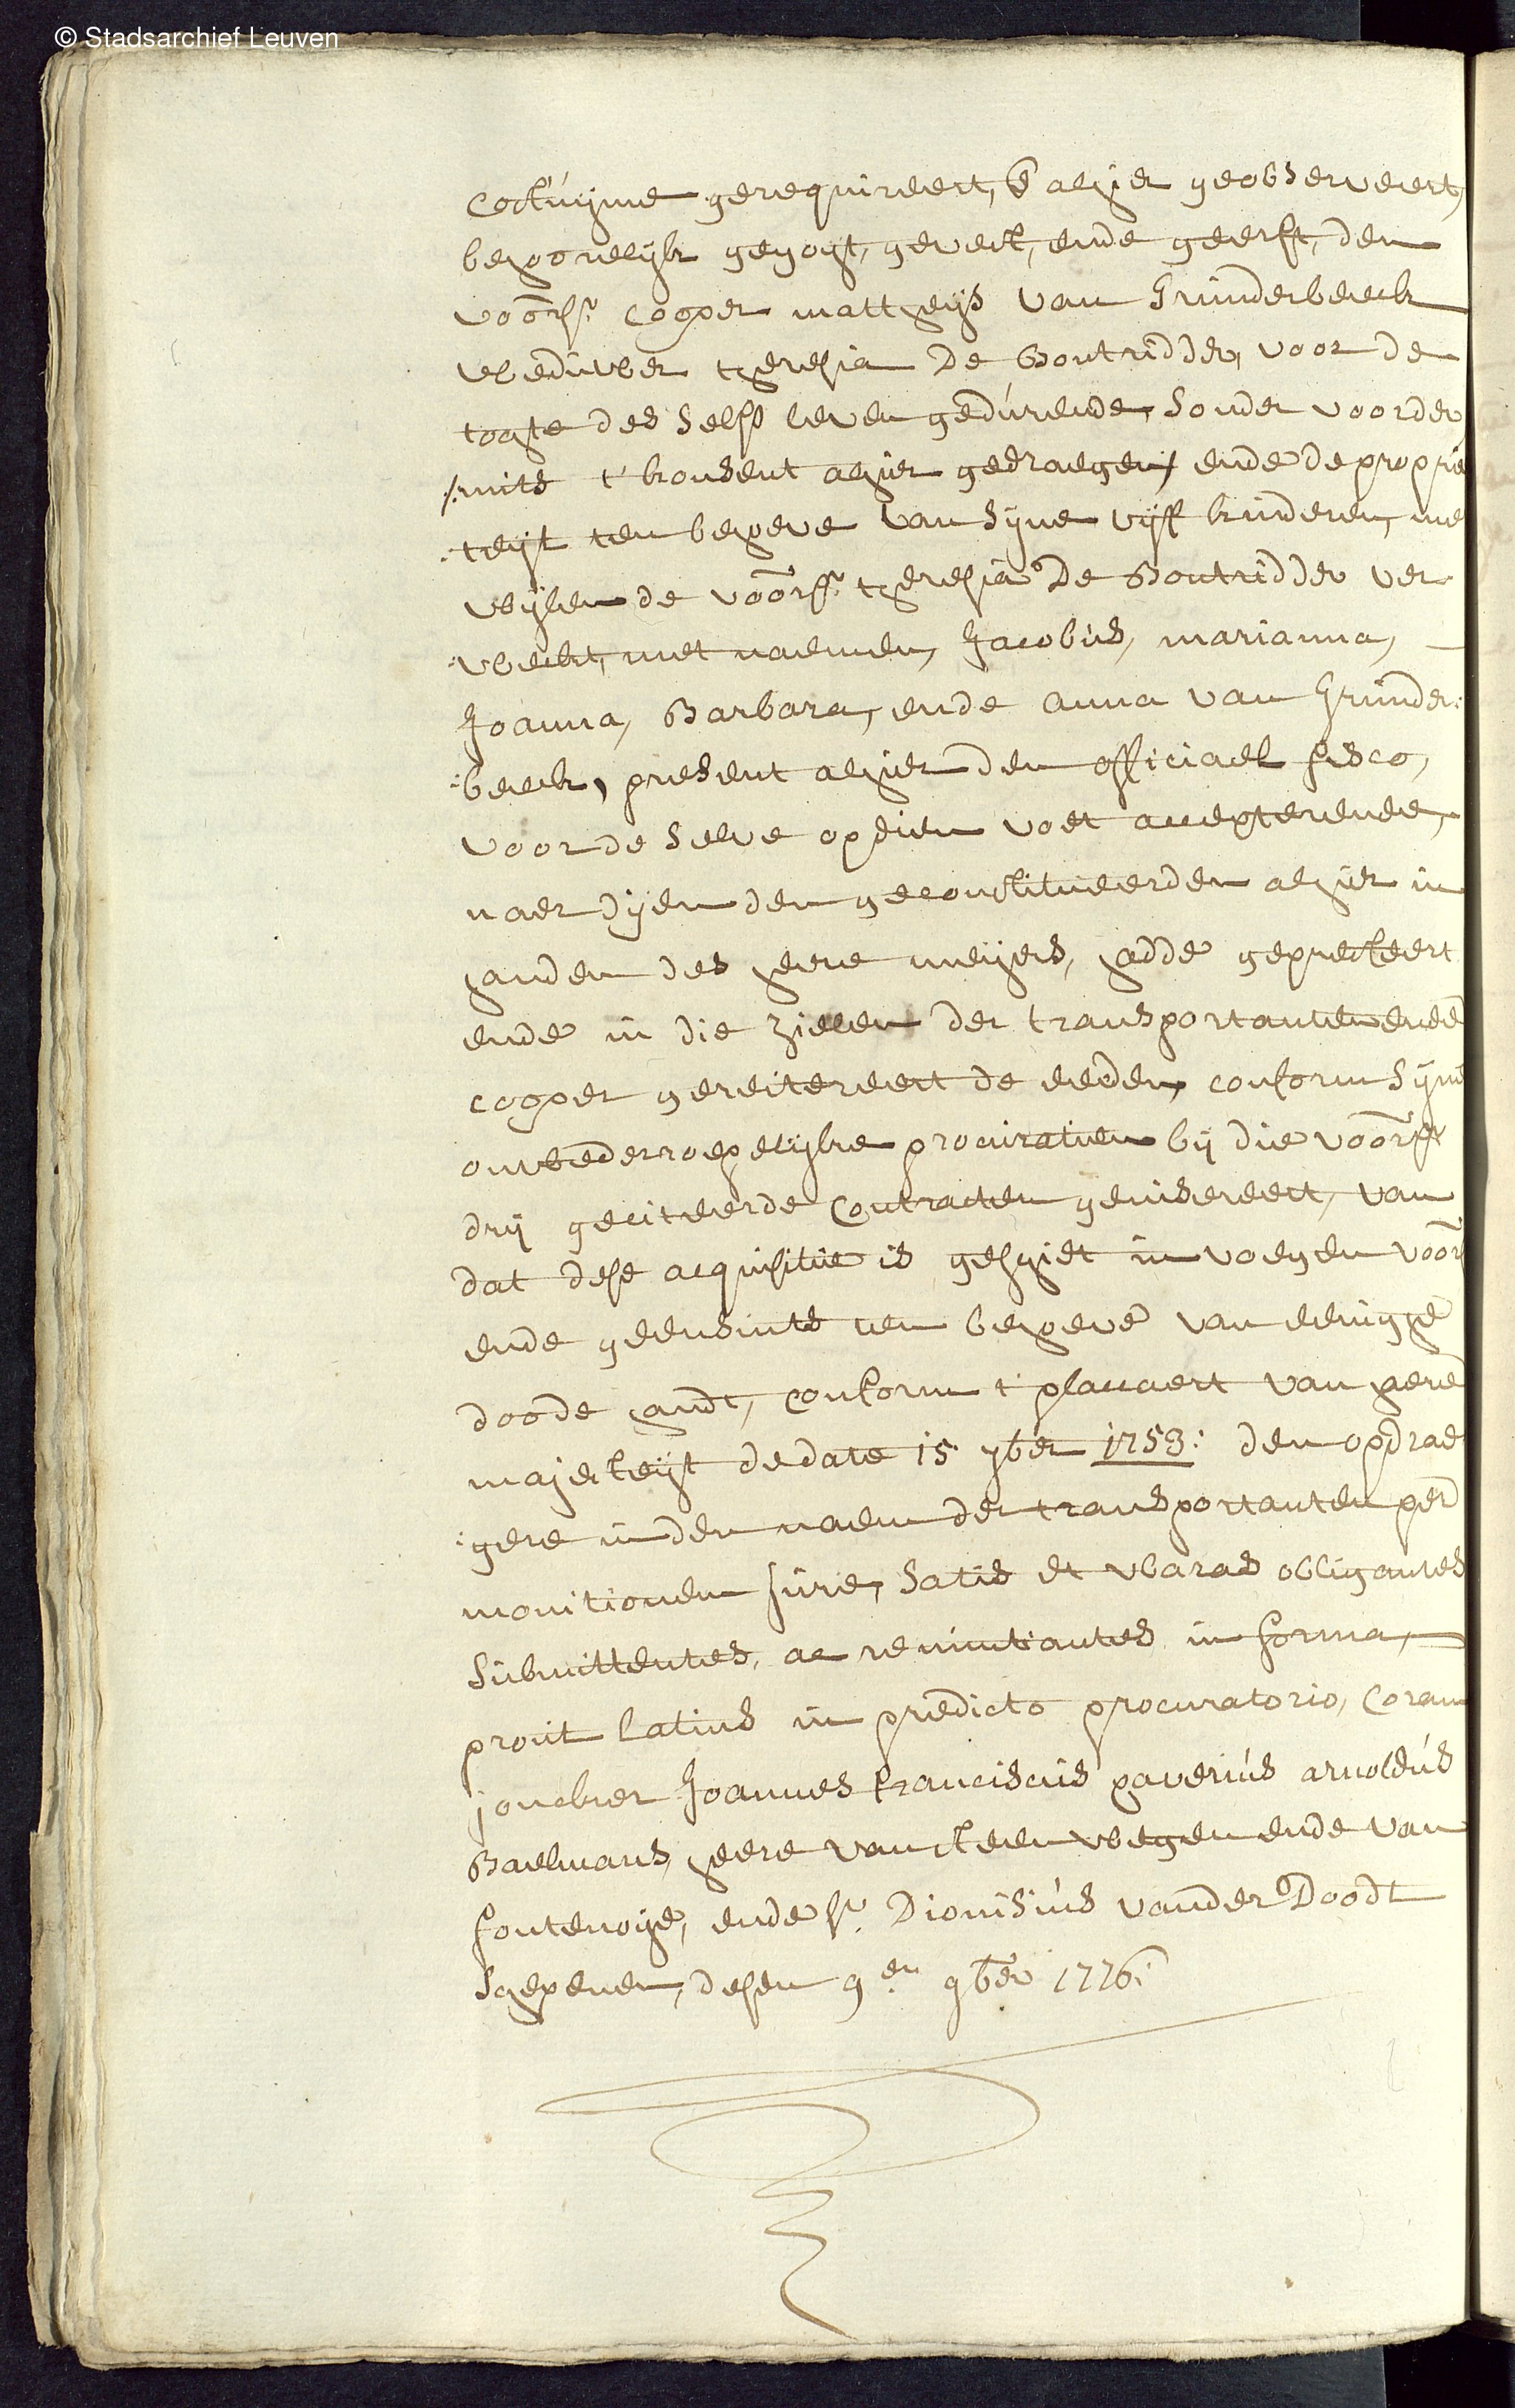 © Stadsarchief Leuven
costuijme gerequireert, e alhier geobserveert,
behoorelijck gegoyt, gevest, ende geerft, den
voors: cooper mattheijs van Grunderbeeck
weduwer theresia De Boutridder, voor de
tochte des selfs leven gedurende, sonder voorder
/:mits t' konsent alhier gedraegen/ ende de proprie
:teijt ten behoeve van sijne vijff kinderen, me
wijlen de voors: theresia De Boutridder ver
:weckt, met naemen, Jacobus, marianna,
Joanna, Barbara, ende anna van Grunder:
:beeck, present alhier den officiael fisco,
voor de selve opdien voet accepterende,
naer dijen den geconstitueerden alhier in
handen des heere meijers, hadde gepresteert
ende in die zielen der transportanten ende
cooper gereitereert de eeden, conform sijne
onwederroepelijcke procuratien bij die voors:
drij geciteerde contracten geinsereert, van
dat dese acquisitie is geschiet in voegen voor
ende geensints ten behoeve van eenighe
doode handt, conform t' placcaert van haere
majesteijt de date 15 7ber 1753: den opdrae
:gere inden naem der transportanten per
monitionem jure, satis et waras obligantes
submittentes, ac renuntiantes in forma,
prout latius in predicto procuratorio, coram
joncker Joannes franciscus xaverius arnoldus
Baelmans, heere van steenwegen ende van
fontenoije, ende sr Dionisius vander Doodt
schepenen, desen 9en 9ber 1776: